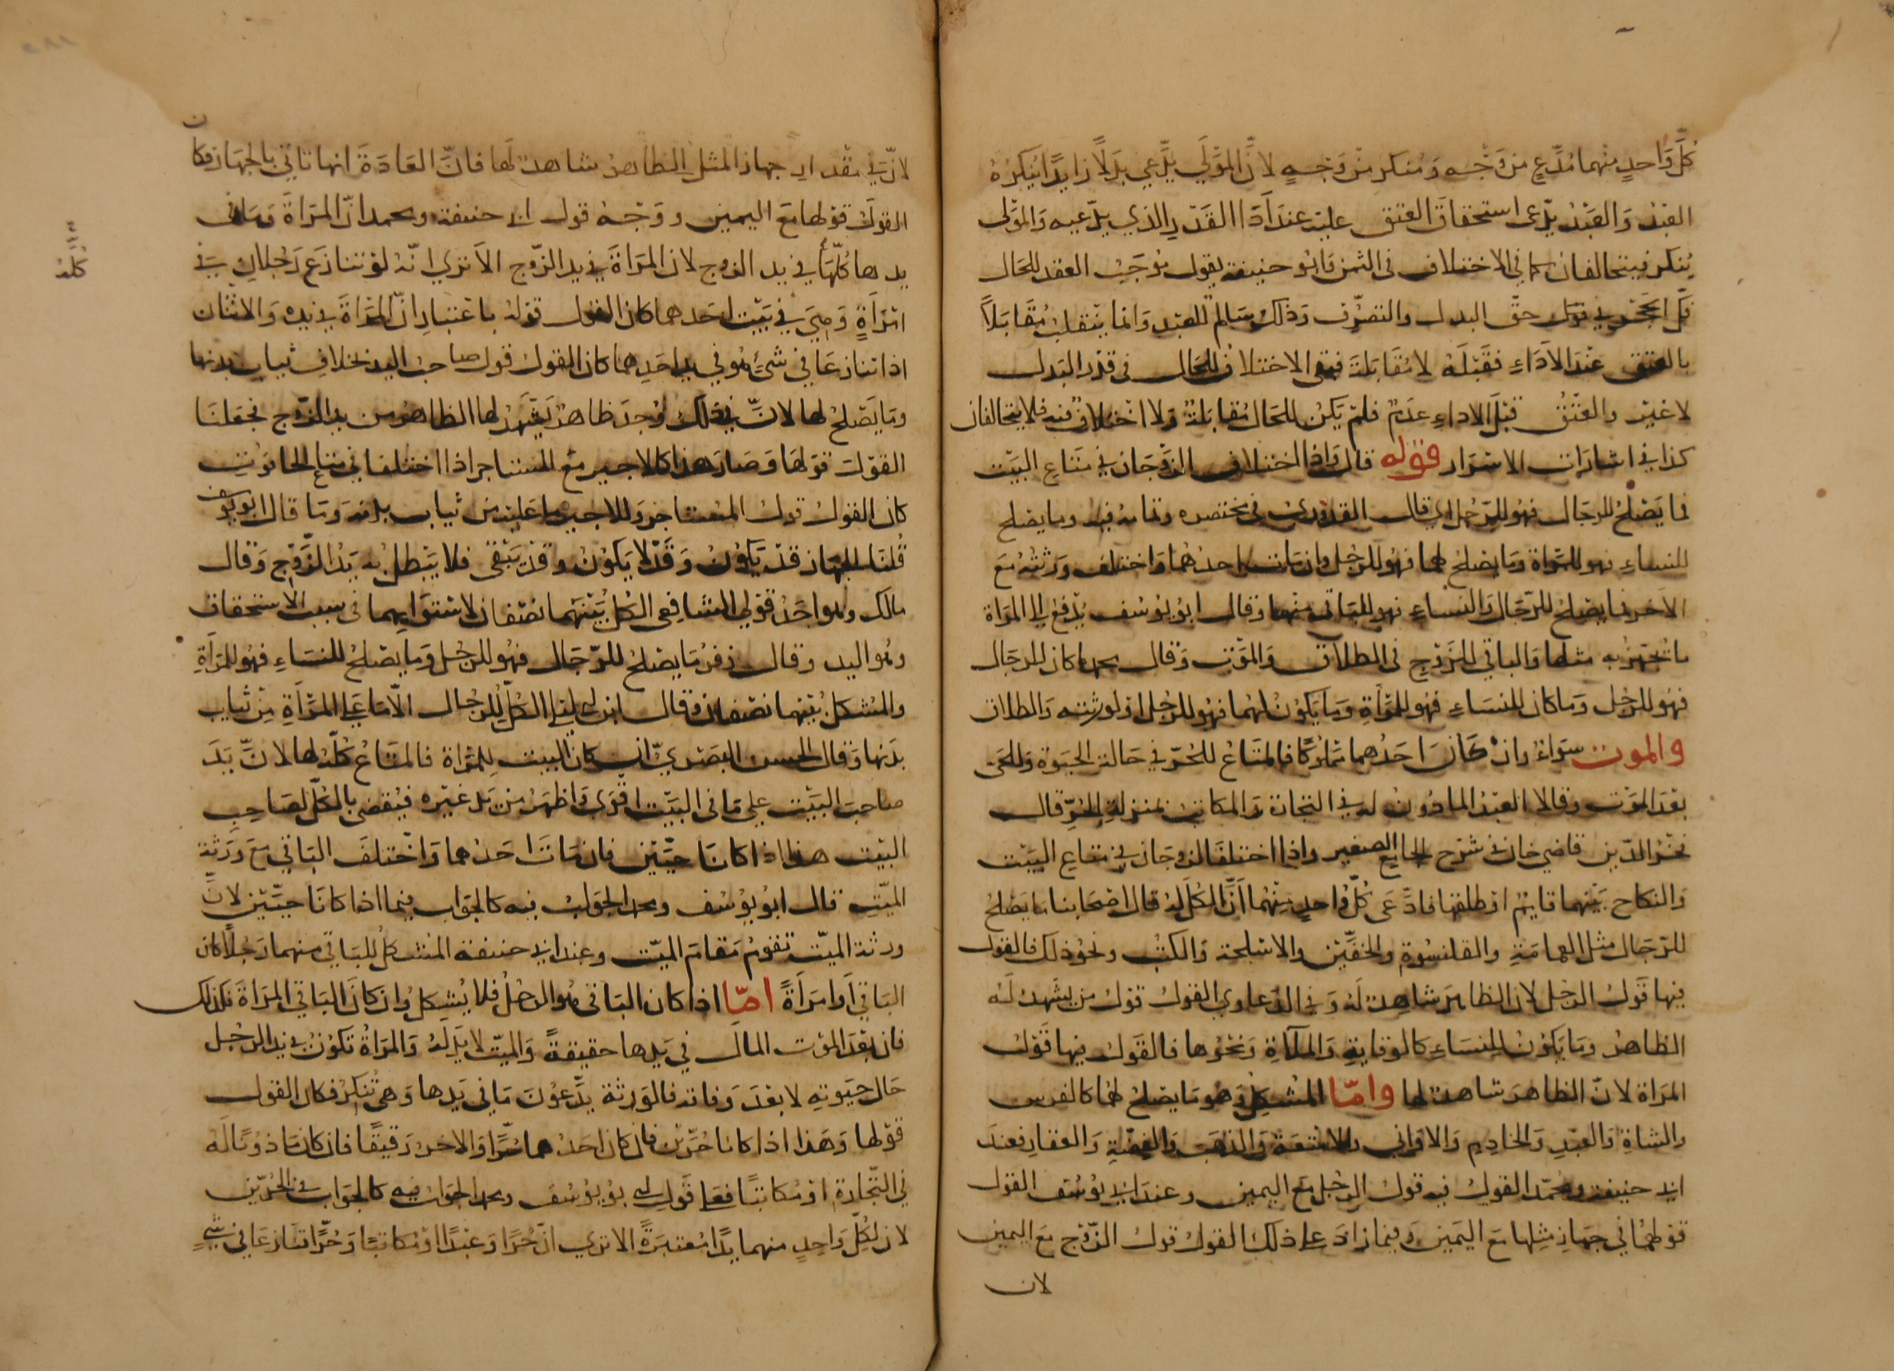 كل واحد منهما مدع من وجه ومنكر من وجه لان المولى يدعي بدلا زايدا ينكره
العبد والعبد يدعى استحقاق العتق عليه عند اداء القدر الذي يدعيه والمولى
ينكر فيتحالفان كما في الاختلاف في الثمن وابو حنيفة يقول موجب العقد للحال
فك الحجر في حق البدل والتصرف وذلك سالم للعبد وانما ينقلب مقابلا
بالعتق عند الاداء فقبله لا مقابلة فبقى الاختلاف للحال في قدر البدل
لا غير والعتق قبل الاداء عدم فلم يكن للحال مقابلة ولا اختلاف فيه فلا يتحالفان
كذا في اشارات الاسرار قوله قال واذا اختلف الزوجان في متاع البيت
فما يصلح للرجال فهو للرجل اي قال القدوري في مختصره وتمامه فيه وما يصلح
للنساء فهو للمراة وما يصلح لهما فهو للرجل وان مات احدهما واختلف ورثته مع
الاخر فما يصلح للرجال والنساء فهو للباقي منهما وقال ابو يوسف يدفع الى المراة
ما تجهز به مثلها والباقي للزوج في الطلاق والموت وقال محمد ما كان للرجال
فهو للرجل وما كان للنساء فهو للمراة وما يكون لهما فهو للرجل او لورثته والطلاق
والموت سواء وان كان احدهما مملوكا فالمتاع للحر في حالة الحيوة وللحي
بعد الموت وقالا العبد الماذون له في التجارة والمكاتب بمنزلة الحر قال
فخر الدين قاضي خان في شرح الجامع الصغير واذا اختلف الزوجان في متاع البيت
والنكاح بينهما قايم او طلقها فادعى كل واحد منهما ان الكل له قال اصحابنا ما يصلح
للرجال مثل العمامة والقلنسوة والخفين والاسلحة والكتب ونحو ذلك فالقول
فيها قول الرجل لان الظاهر شاهد له وفي الدعاوي القول قول من يشهد له
الظاهر وما يكون للنساء كالوقاية والملاة ونحوها فالقول فيها قول
المراة لان الظاهر شاهد لها واما المشكل وهو ما يصلح لهما كالفرس
والشاة والعبد والخادم والاواني والامتعة والذهب والفضة والعقار فعند
ابي حنيفة ومحمد القول فيه قول الرجل مع اليمين وعند ابي يوسف القول
قولها في جهاز مثلها مع اليمين وفيما زاد على ذلك القول قول الزوج مع اليمين
لان
لان في مقدار جهاز المثل الظاهر شاهد لها فان العادة انها تاتي بالجهاز فكان
القول قولها مع اليمين ووجه قول ابي حنيفة ومحمد ان المراة وما في
يدها كلها في يد الزوج لان المراة في يد الزوج الا ترى انه لو تنازع رجلان في
كله
امراة وهي في بيت احدهما كان القول قوله باعتبار ان المراة في يده والاثنان
اذا تنازعا في شئ هو في يد احدهما كان القول قول صاحب اليد بخلاف ثياب بدنها
وما يصلح لها لان في ذلك وجد ظاهر يشهد لها اظهر من يد الزوج فجعلنا
القول قولها وصار هذا كالاجير مع المستاجر اذا اختلفا في متاع الحانوت
كان القول قول المستاجر وللاجير ما عليه من ثياب بدنه وما قال ابو يوسف
قلنا الجهاز قد يكون وقد لا يكون وقد يبقى فلا يبطل به يد الزوج وقال
مالك وهو احد قولي الشافعي الكل بينهما نصفان لاستوايهما في سبب الاستحقاق
وهو اليد وقال زفر ما يصلح للرجال فهو للرجل وما يصلح للنساء فهو للمراة
والمشكل بينهما نصفان وقال ابن ابي ليلى الكل للرجال الا ما على المراة من ثياب
بدنها وقال الحسن البصري ان كان البيت للمراة فالمتاع كله لها لان يد
صاحب البيت على ما في البيت اقوى واظهر من يد غيره فيقضى بالكل لصاحب
البيت هذا اذا كانا حيين فان مات احدهما واختلف الباقي مع ورثة
الميت قال ابو يوسف ومحمد الجواب فيه كالجواب فيما اذا كانا حيين لان
ورثة الميت تقوم مقام الميت وعند ابي حنيفة المشكل للباقي منهما رجلا كان
الباقي او امراة اما اذا كان الباقي هو الرجل فلا يشكل وان كان الباقي المراة فكذلك
فان بعد الموت المال في يدها حقيقة والميت لا يد له والمراة تكون في يد الرجل
حال حيوته لا بعد وفاته فالورثة يدعون ما في يدها وهي تنكر فكان القول
قولها وهذا اذا كانا حرين فان كان احدهما حرا والاخر رقيقا فان كان ماذونا له
في التجارة او مكاتبا فعلى قول ابي يوسف ومحمد الجواب فيه كالجواب في الحرين
لان لكل واحد منهما يدا معتبرة الا ترى ان حرا وعبدا او مكاتبا وحرا تنازعا في شئ